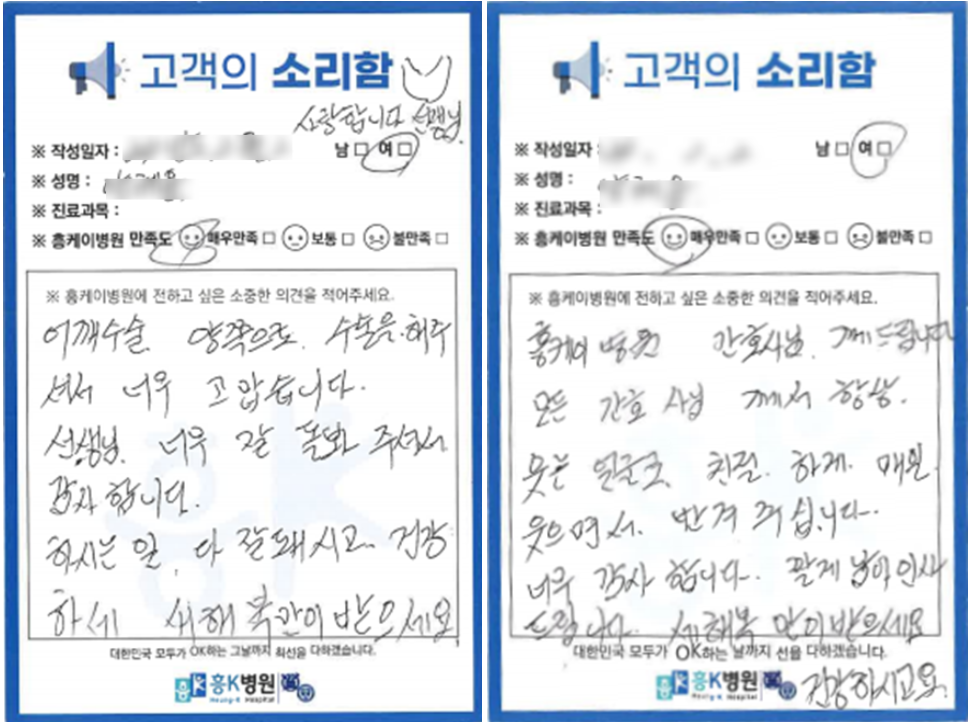 고객의 소리함
사랑합니다 선생님
※ 작성일자 :
남 □ 여 □
※ 성명 :
※ 진료과목 :
※ 흥케이병원 만족도 매우만족 □ 보통 □ 불만족 □
※ 흥케이병원에 전하고 싶은 소중한 의견을 적어주세요.
어깨수술 양쪽으로 수술을 해주
셔서 너무 고맙습니다.
선생님 너무 잘 돌봐 주셔서
감사 합니다.
하시는 일 다 잘돼시고 건강
하세 새해 복 만이 받으세요
대한민국 모두가 OK하는 그날까지 최선을 다하겠습니다.
흥K병원
Heung-K Hospital
고객의 소리함
※ 작성일자 :
남 □ 여 □
※ 성명 :
※ 진료과목 :
※ 흥케이병원 만족도 매우만족 □ 보통 □ 불만족 □
※ 흥케이병원에 전하고 싶은 소중한 의견을 적어주세요.
흥케이 병원 간호사님 께 드립니다
모든 간호 사님 께서 항상.
웃는 얼굴로 친절. 하게. 매일.
웃으면서. 반겨 주십니다.
너무 감사 합니다.
드립니다. 새해복 만이 받으세요
대한민국 모두가 OK하는 날까지 선을 다하겠습니다.
흥K병원
Heung-K Hospital
건강하시고요.